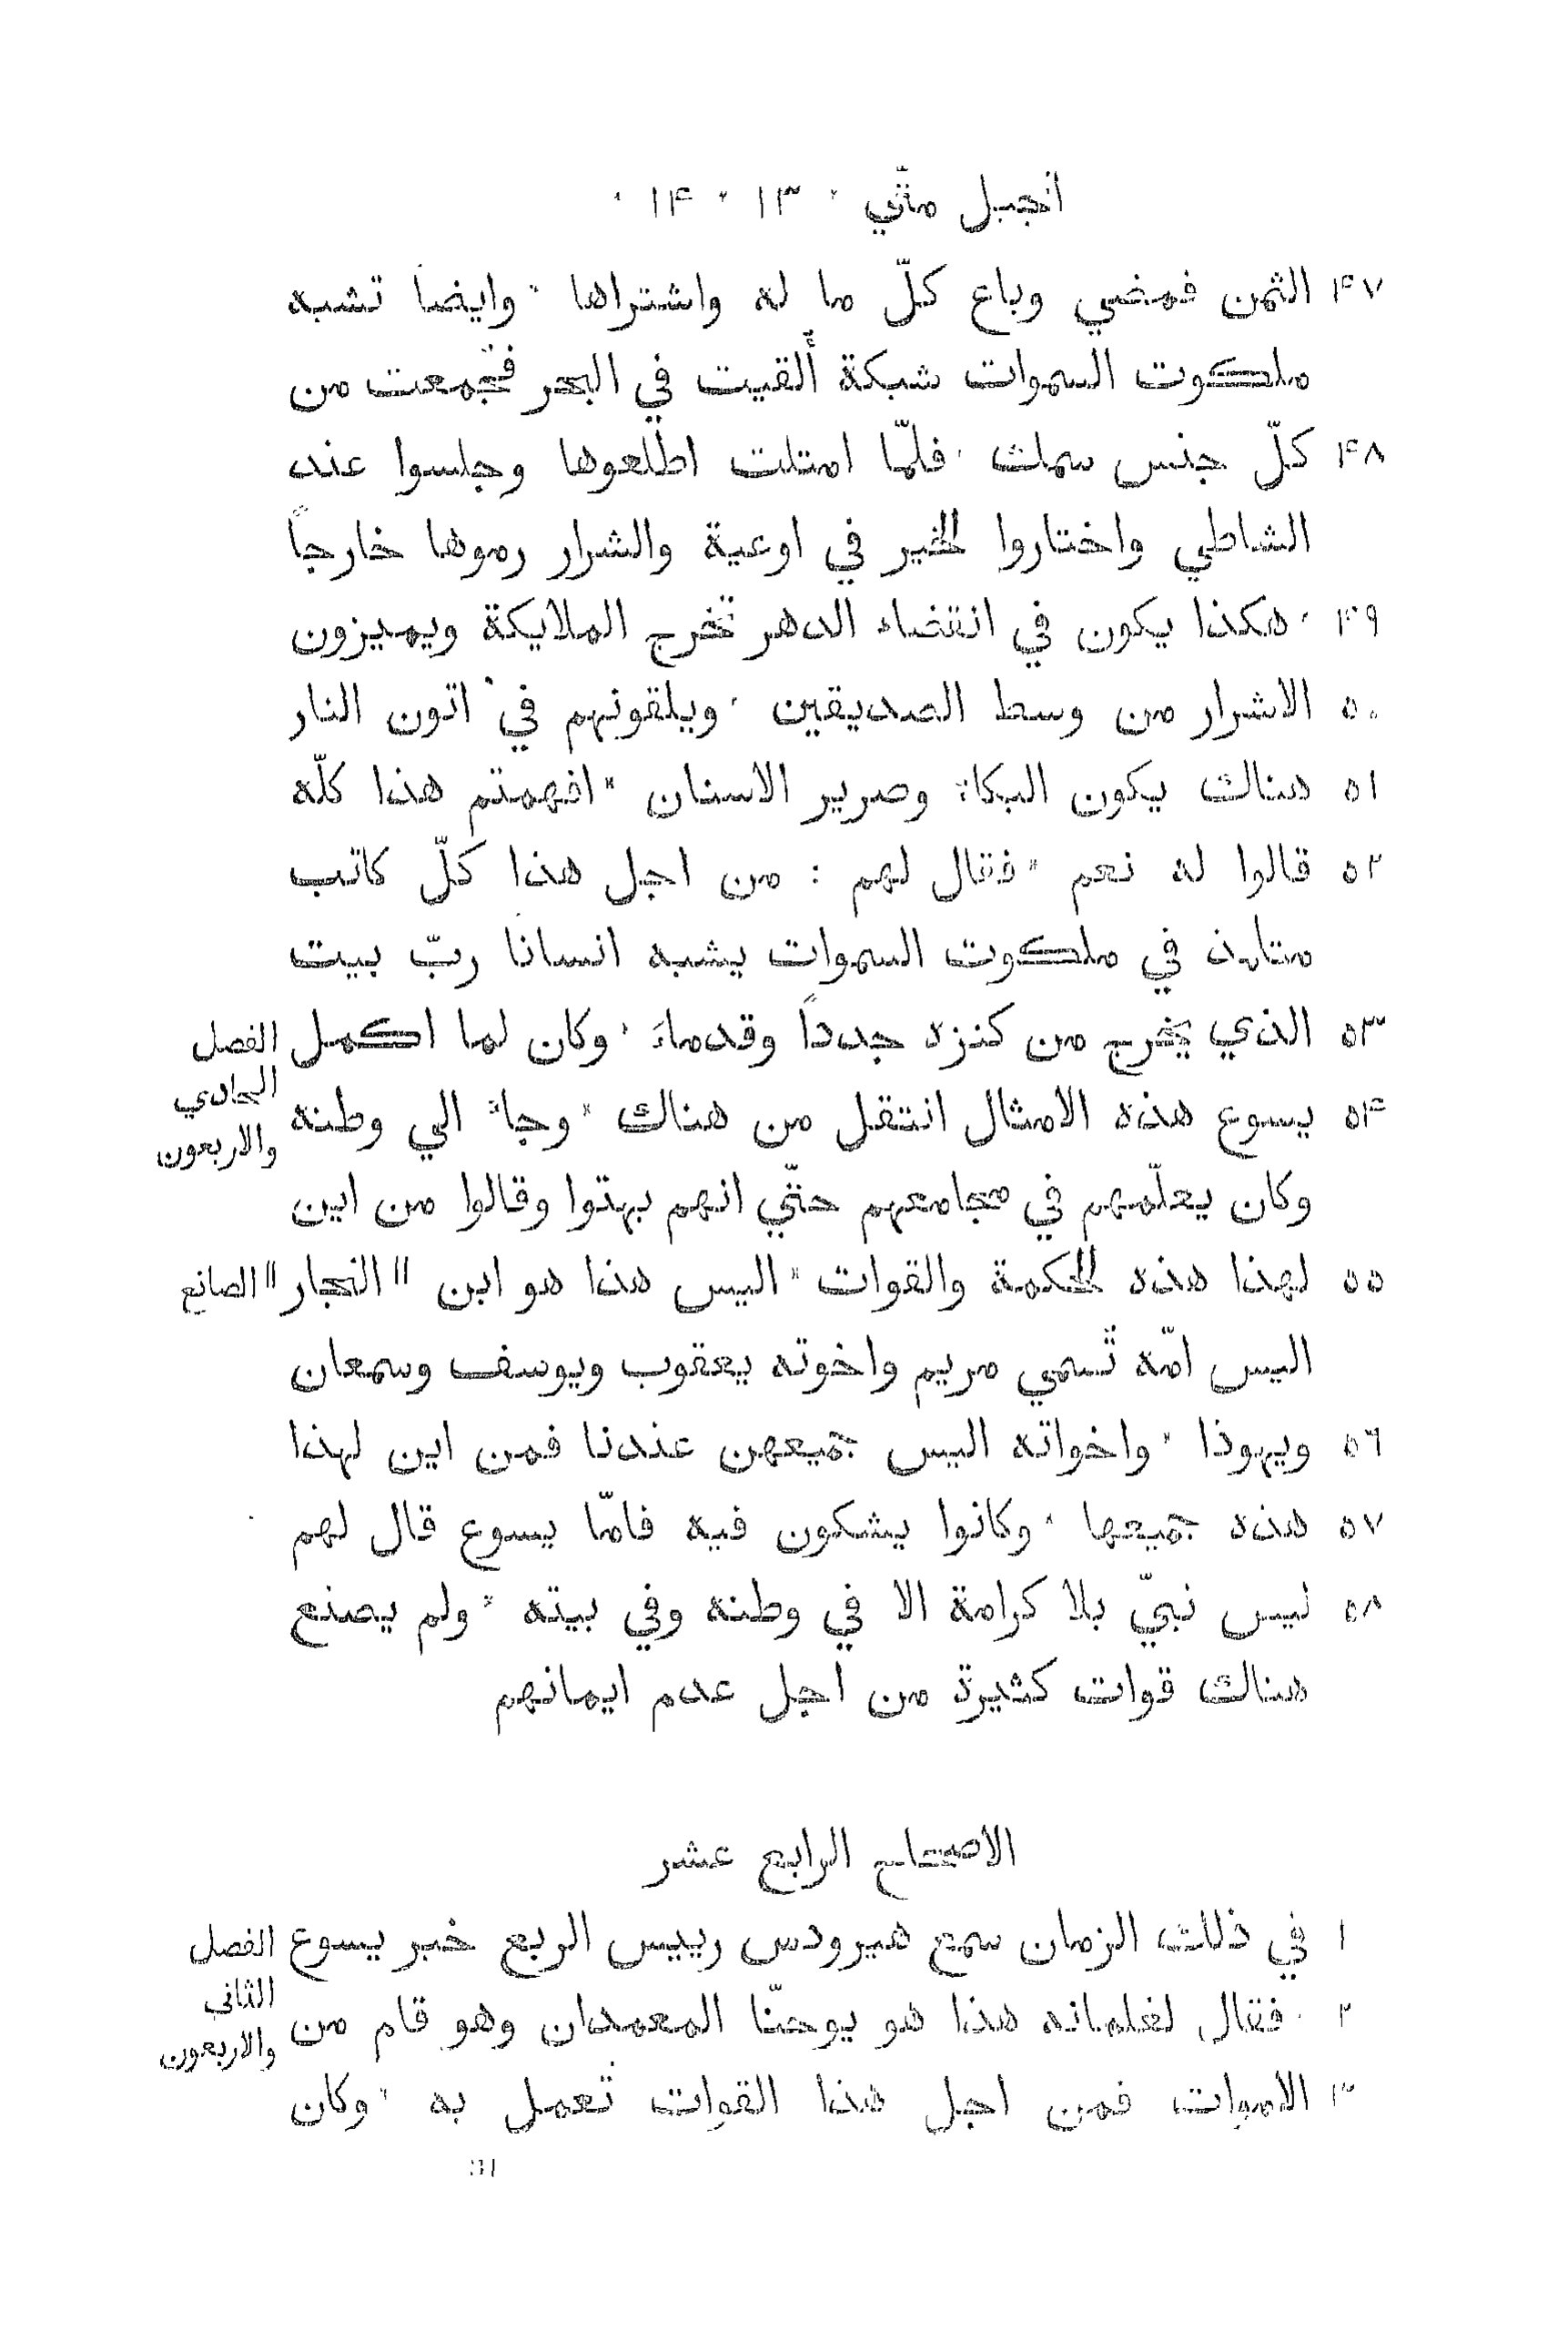 انجيل متّي ٠ ١٣ ٠ ١۴ ٠
۴٧ الثمن فمضي وباع كلّ ما له واشتراها * وايضا تشبه
ملكوت السموات شبكة أُلقيت في البحر فتجمعت من
۴٨ كلّ جنس سمك ٠ فلمّا امتلت اطلعوها وجلسوا عند
الشاطي واختاروا الخير في اوعية والشرار رموها خارجاً
۴٩ ٠ هكذا يكون في انتضاء الدهر تخرج الملايكة ويميزون
٥٠ الاشرار من وسط الصديقين ٠ ويلقونهم في اتون النار
٥١ هناك يكون البكاء وصرير الاسنان * افهمتم هذا كلّه
٥٢ قالوا له نعم * فقال لهم : من اجل هذا كلّ كاتب
متلمذ في ملكوت السموات يشبه انسانا ربّ بيت
٥٣ الذي يخرج من كنزه جدداً وقدماء ٠ وكان لما اكمل الفصل
الحادي
٥۴ يسوع هذه الامثال انتقل من هناك * وجاء الي وطنه والاربعون
وكان يعلّمهم في مجامعهم حتّي انهم بهتوا وقالوا من اين
٥٥ لهذا هذه الحكمة والقوات * اليس هذا هو ابن || النجار || الصانع
اليس امّه تُسمي مريم واخوته يعقوب ويوسف وسمعان
٥٦ ويهوذا * واخواته اليس جميعهن عندنا فمن اين لهذا
٥٧ هذه جميعها ٠ وكانوا يشكون فيه فامّا يسوع قال لهم
٥٨ ليس نبيّ بلا كرامة الا في وطنه وفي بيته * ولم يصنع
هناك قوات كثيرة من اجل عدم ايمانهم
الاصحاح الرابع عشر
١ في ذلك الزمان سمع هيرودس رييس الربع خبر يسوع الفصل
الثاني
٢ ٠ فقال لغلمانه هذا هو يوحنّا المعمدان وهو قام من والاربعون
٣ الاموات فمن اجل هذا القوات تعمل به ٠ وكان